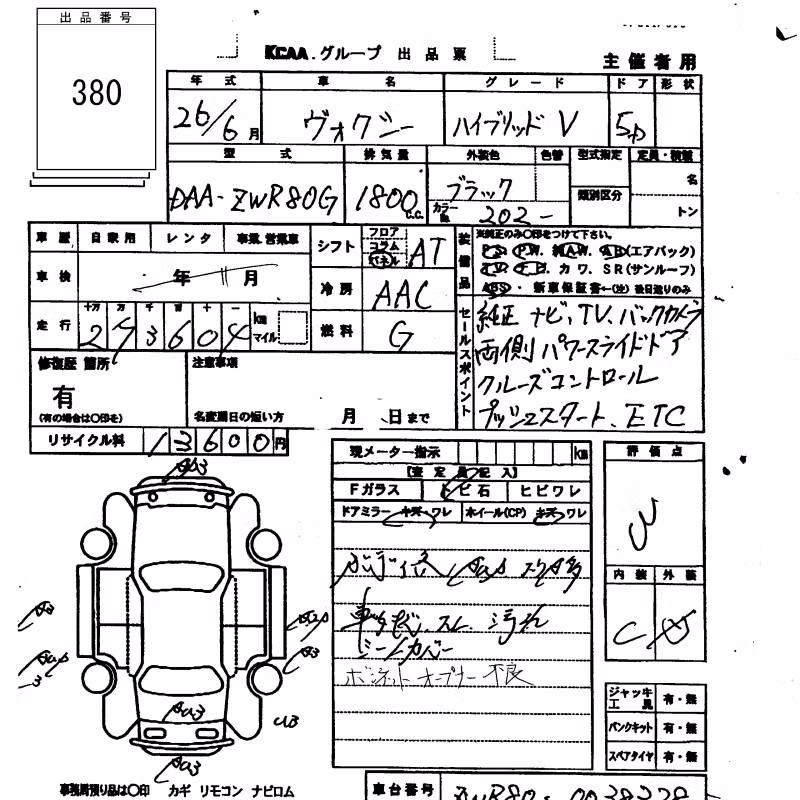 出品番号
380
KCAA.グループ 出品票
主催者用
年式 車名 グレード ドア 形状
26/6月 ヴォクシー ハイブリッド V 5D
型式 排気量 外装色 色替 型式指定 定員・積載
DAA-ZWR80G 1800 C.C. ブラック 類別区分 名
カラーNo. 202- トン
車歴 自家用 レンタ 事業.営業車
シフト フロア コラム パネル AT
車検 年 月
冷房 AAC
走行 十万 万 千 百 十 一
293604 km マイル
燃料 G
装備品 ※純正のみ〇印をつけて下さい。
PS. PW. 純AW. AB(エアバック)
TV. ナビ. カワ. SR(サンルーフ)
ABS・ 新車保証書←(注)後日送りのみ
セールスポイント
純正ナビ、TV、バックカメラ
両側パワースライドドア
クルーズコントロール
プッシュスタート、ETC
修復歴 箇所
有
(有の場合は〇印を)
注意事項
名変期日の短い方 月 日まで
リサイクル料 13600円
現メーター指示 km
【査定員記入】
Fガラス 飛ビ石 ヒビワレ
ドアミラー キズ・ワレ ホイール(CP) キズ・ワレ
スリ多
スレ、汚れ
シートカバー
ボンネットオープナー不良
評価点
3
内装 外装
C
ジャッキ工具 有・無
パンクキット 有・無
スペアタイヤ 有・無
A3
U3
事務局預り品は〇印 カギ リモコン ナビロム
車台番号 ZWR80-0038328